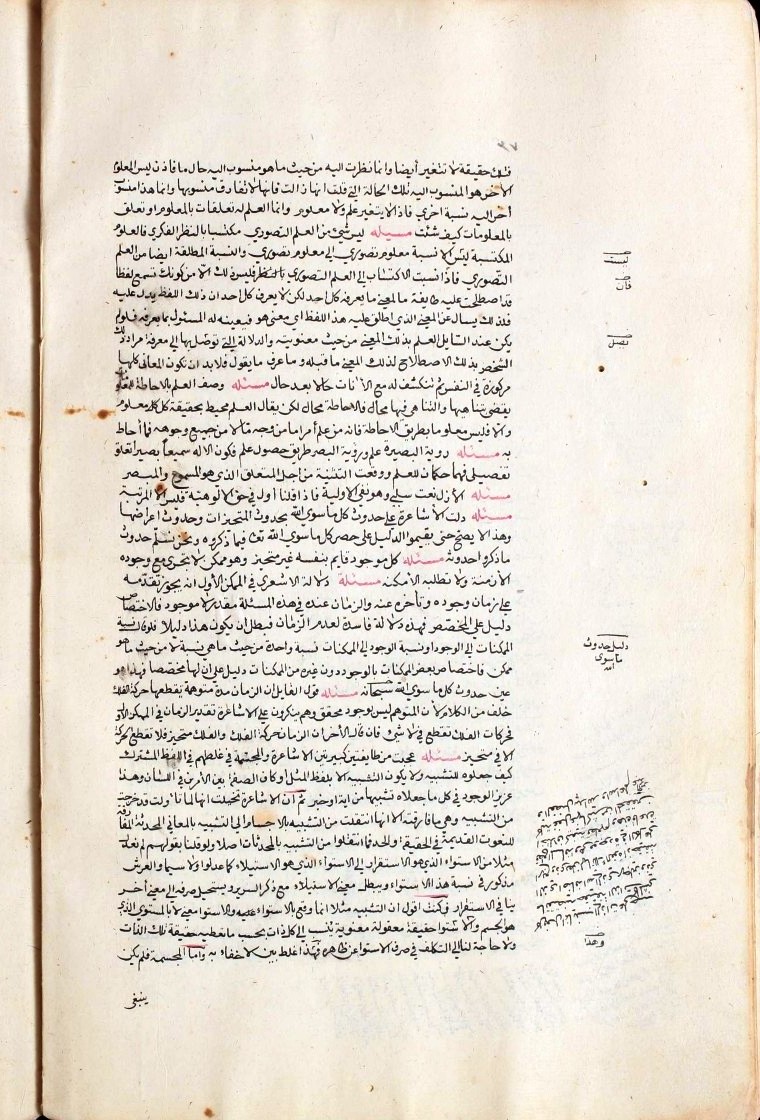 فتلك حقيقة لا تتغير أيضا وانما نظرت اليه من حيث ما هو منسوب اليه حال ما فاذن ليس المعلوم
الآخر هو المنسوب اليه تلك الحالة التي قلت انها زالت فانها لا تفارق منسوبها وانما هذا منسوب
آخر اليه نسبة اخرى فاذا لا يتغير علم ولا معلوم وانما العلم له تعلقات بالمعلوم او تعلق
بالمعلومات كيف شئت مسئله ليس شيء من العلم التصوري مكتسبا بالنظر الفكري فالعلوم
المكتسبة ليس الا نسبة معلوم تصوري الى معلوم تصوري والنسبة المطلقة ايضا من العلم
التصوري فاذا نسبت الاكتساب الى العلم التصوري بالنظر فليس ذلك الا من كونك تسمع لفظا
قد اصطلحت عليه طايفة ما لمعنى ما يعرفه كل احد لكن لا يعرف كل احد ان ذلك اللفظ يدل عليه
فلذلك يسال عن المعنى الذي اطلق عليه هذا اللفظ اي معنى هو فيعينه له المسئول بما يعرفه فلو لم
يكن عند السايل العلم بذلك المعنى من حيث معنويته والدلالة التي توصل بها الى معرفة مراد ذلك
الشخص بذلك الاصطلاح لذلك المعنى ما قبله وما عرف ما يقول فلا بد ان تكون المعاني كلها
مركوزة في النفس ثم تنكشف له مع الآنات حالا بعد حال مسئله وصف العلم بالاحاطة للمعلومات
يقضي بتناهيها والتناهي فيها محال فالاحاطة محال لكن يقال العلم محيط بحقيقة كل معلوم
والا فليس معلوما بطريق الاحاطة فانه من علم أمرا ما من وجه ما لا من جميع وجوهه فما أحاط
به مسئله روية البصيرة علم وروية البصر طريق حصول علم فكون الاله سميعا بصيرا تعلق
تفصيلي فهما حكمان للعلم ووقعت التثنية من اجل المتعلق الذي هو المسموع والمبصر
مسئله الأزل نعت سلبي وهو نفي الاولية فاذا قلنا أول في حق الالوهية فليس الا المرتبة
مسئله دلت الأشاعرة على حدوث كل ما سوى الله بحدوث المتحيزات وحدوث اعراضها
وهذا لا يصح حتى يقيموا الدليل على حصر كل ما سوى الله تعالى فيما ذكروه ونحن نسلم حدوث
ما ذكروا حدوثه مسئله كل موجود قايم بنفسه غير متحيز وهو ممكن لا تجري مع وجوده
الازمنة ولا تطلبه الامكنه مسئله دلالة الاشعري في الممكن الأول انه يجوز تقدمه
على زمان وجوده وتأخره عنه والزمان عنده في هذه المسئلة مقدر لا موجود فالاختصاص
دليل على المخصص فهذه دلالة فاسدة لعدم الزمان فبطل ان يكون هذا دليلا فلو قال نسبة
الممكنات الى الوجود او نسبة الوجود الى الممكنات نسبة واحدة من حيث ما هي نسبة لا من حيث ما هو
ممكن فاختصاص بعض الممكنات بالوجود دون غيره من الممكنات دليل على ان لها مخصصا فهذا هو
عين حدوث كل ما سوى الله سبحانه مسئله قول القايل ان الزمان مدة متوهمة يقطعها حركة الفلك
خلف من الكلام لأن المتوهم ليس بوجود محقق وهم ينكرون على الاشاعرة تقدير الزمان في الممكن الأول
فحركات الفلك تقطع في لا شيء فان قال الآخر ان الزمان حركة الفلك والفلك متحيز فلا تقطع الحركة
الا في متحيز مسئله عجبت من طايفتين كبيرتين الاشاعرة والمجسمة في غلطهم في اللفظ المشترك
كيف جعلوه للتشبيه ولا يكون التشبيه الا بلفظ المثل او كاف الصفة بين الأمرين في اللسان وهذا
عزيز الوجود في كل ما جعلاه تشبيها من اية او خبر ثم أن الأشاعرة تخيلت انها لما تاولت قد خرجت
من التشبيه وهي ما فارقته الا انها انتقلت من التشبيه بالاجسام الى التشبيه بالمعاني المحدثة المفارقة
للنعوت القديمة في الحقيقة والحد فما انتقلوا من التشبيه بالمحدثات اصلا ولو قلنا بقولهم لم نعدل
مثلا من الاستواء الذي هو الاستقرار الى الاستواء الذي هو الاستيلاء كما عدلوا ولا سيما والعرش
مذكور في نسبة هذا الاستواء ويبطل معنى الاستيلاء مع ذكر السرير ويستحيل صرفه الى معنى آخر
ينافي الاستقرار فكنت اقول ان التشبيه مثلا انما وقع بالاستواء والاستواء معنى لا بالمستوي الذي
هو الجسم والاستوا حقيقة معقولة معنوية تنسب الى كل ذات بحسب ما تعطيه حقيقة تلك الذات
ولا حاجة لنا الى التكلف في صرف الاستوا عن ظاهره فهذا غلط بين لا خفاء به وأما المجسمة فلم يكن
ينبغي
ليست
فان
دليل حدوث
ما سوى
الله
وهذا